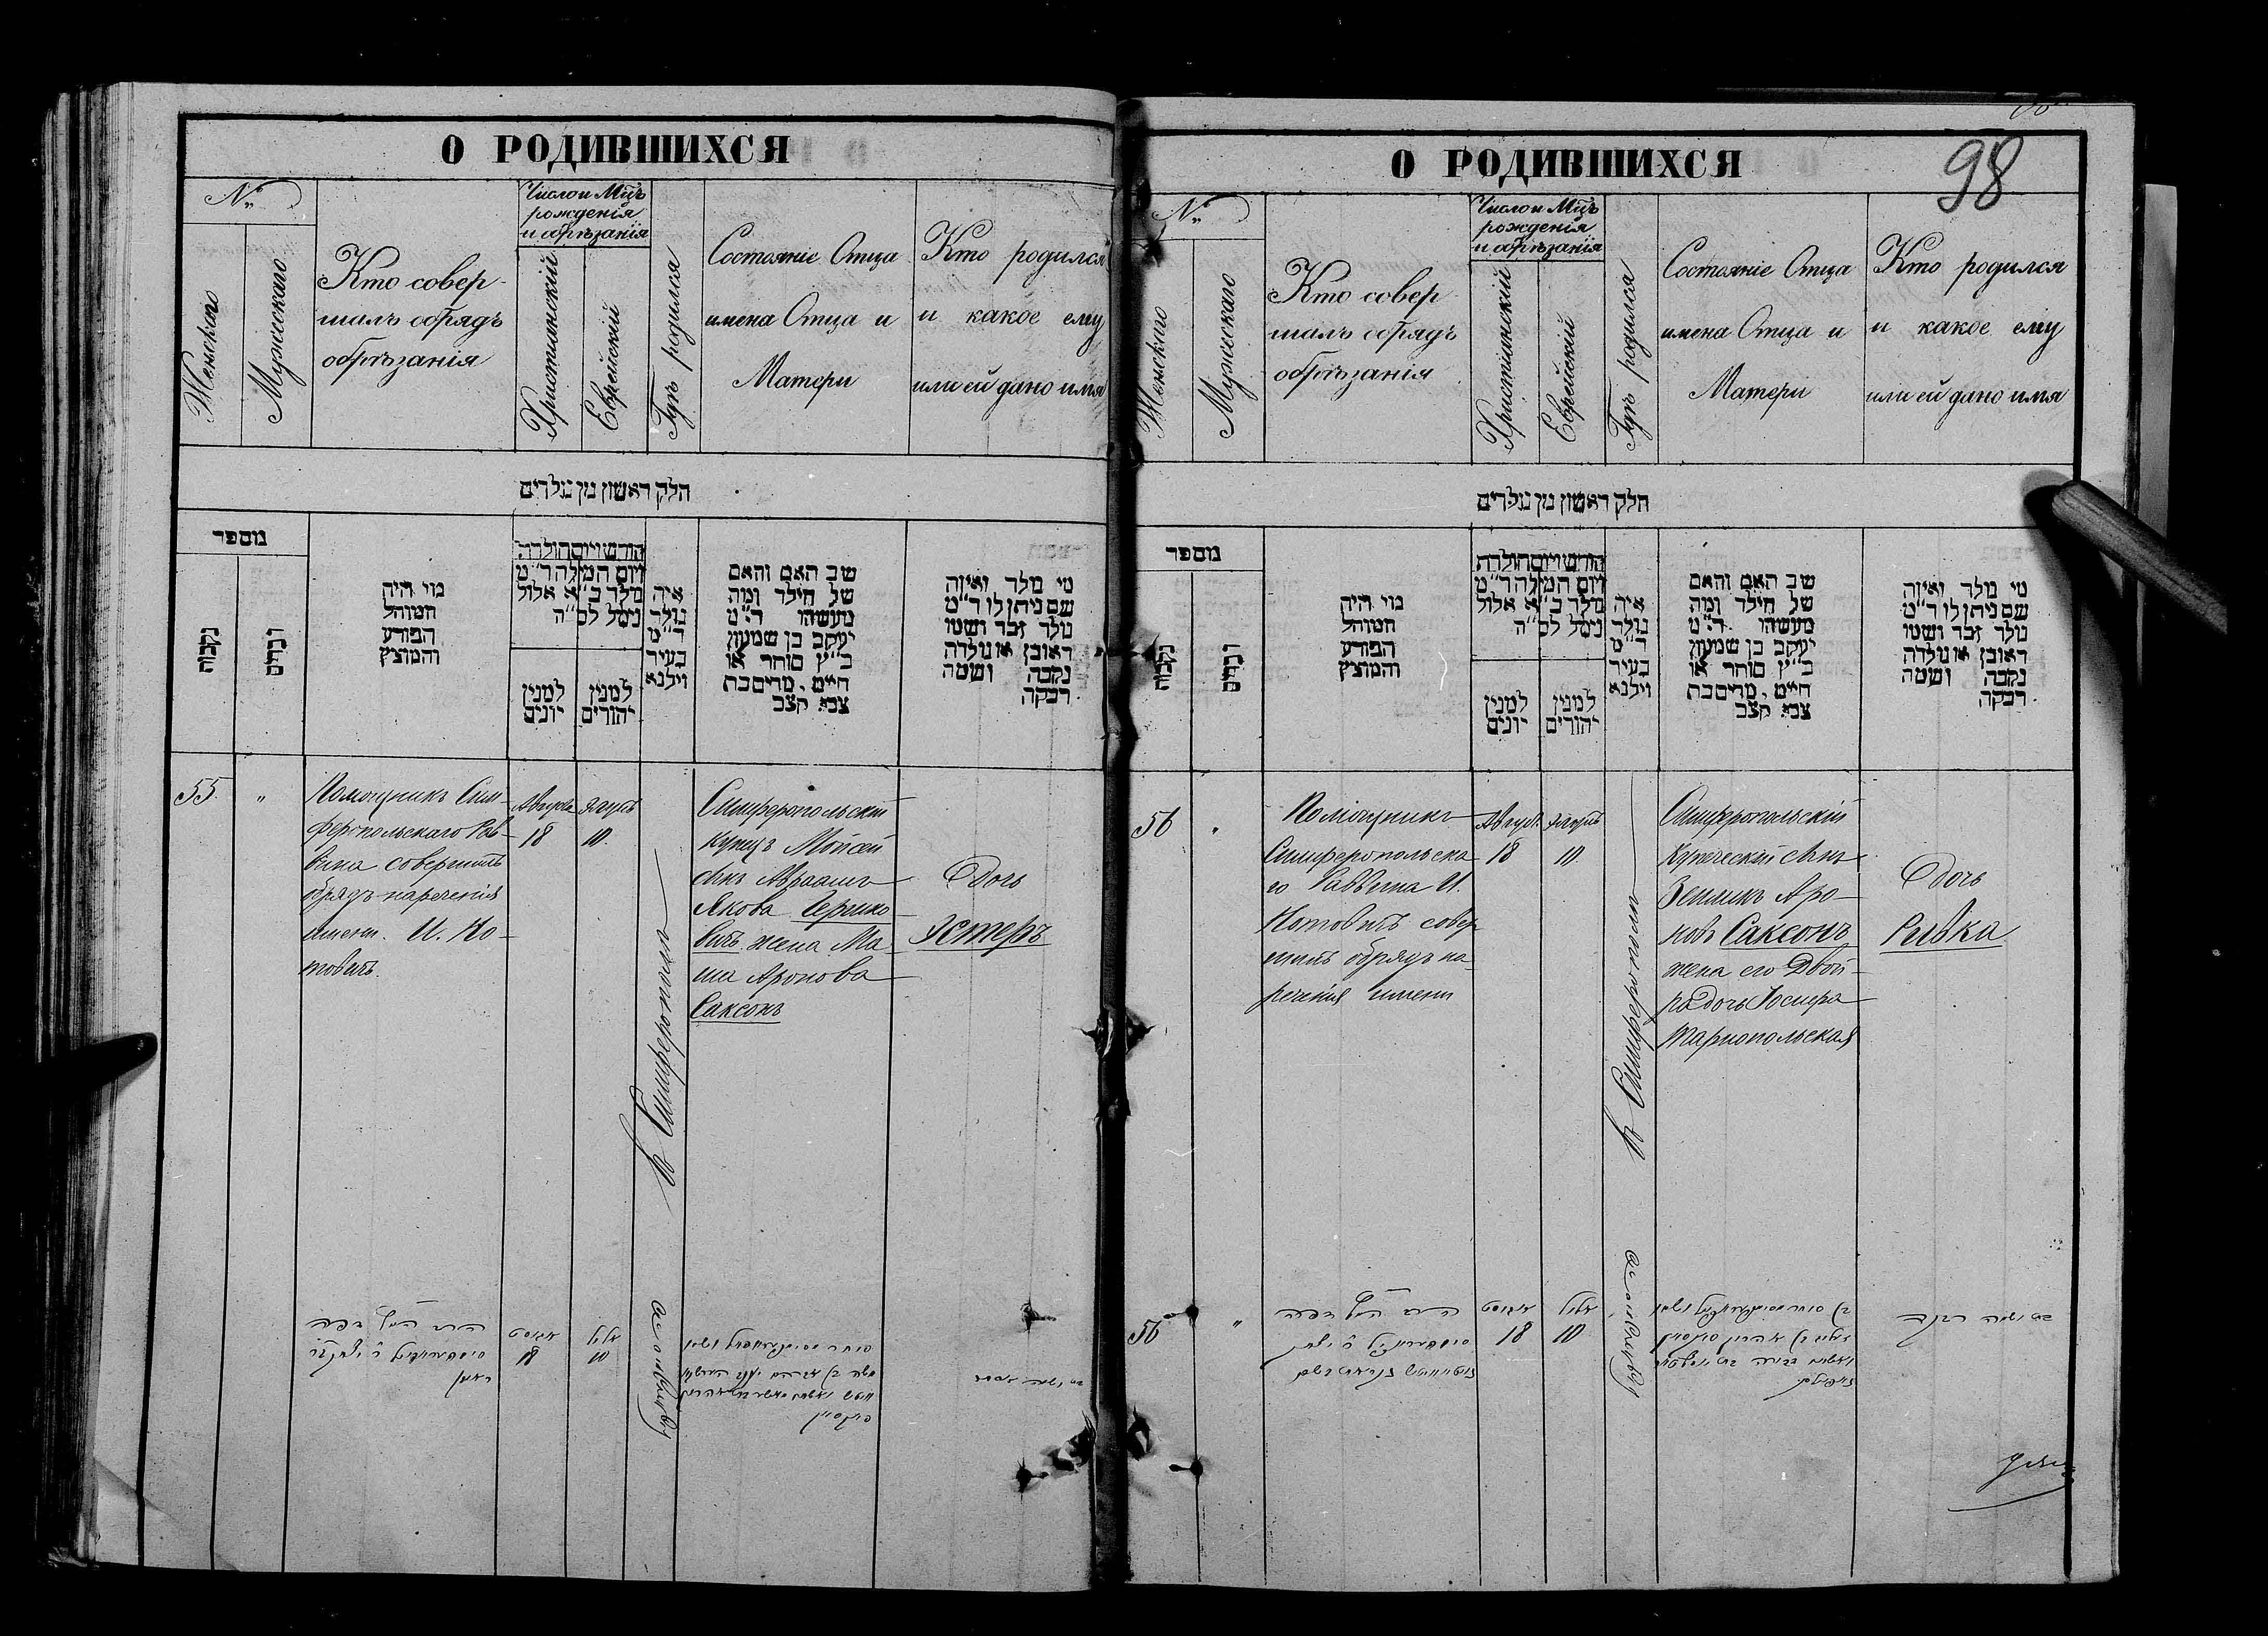 О РОДИВШИХСЯ
№
Женскаго
Мужескаго
Кто совер-
шалъ обрядъ
обрѣзанія
Число и Мц҃ъ
рожденія
и обрѣзанія
Христіанскій
Еврейскій
Гдѣ родился
Состояніе Отца
имена Отца и
Матери
Кто родился
и какое ему
или ей дано имя
חלק ראשון מן נולדים
מספר
נקבות
זכרים
מוי היה
המוהל
הפורע
והמוצץ
חודש ויום הולדת
ויום המילה ד״מ
נולד כ״א אלול
נימל לס״ה
למנין
יונים
למנין
יהודים
איה
נולד
ד״מ
בעיר
ווילנא
שב האם והאם
של הילד ומה
מעשהו ד״מ
יעקב בן שמעון
כ״ץ סוחר או
חייט, מרים בת
צבי קצב
מי נולד ואיזה
שם ניתן לו ד״מ
נולד זכר ושמו
ראובן או נולדה
נקבה ושמה
רבקה
55.
"
Помощникъ Сим-
феропольскаго Рав-
вина совершилъ
обрядъ наречения
имени. И. Но-
товичъ.
Августа
18
Элулъ
10.
въ Симферополѣ
Симферопольскій
купецъ Мойсей
сынъ Авраамъ
Якова Герцико-
вичъ. жена Ма-
ша Аронова
Саксонъ
Дочь
Эстеръ
אוגוסט
18
אלול
10
О РОДИВШИХСЯ
98
№
Женскаго
Мужескаго
Кто совер-
шалъ обрядъ
обрѣзанія
Число и Мц҃ъ
рожденія
и обрѣзанія
Христіанскій
Еврейскій
Гдѣ родился
Состояніе Отца
имена Отца и
Матери
Кто родился
и какое ему
или ей дано имя
חלק ראשון מן נולדים
מספר
נקבות
זכרים
מוי היה
המוהל
הפורע
והמוצץ
חודש ויום הולדת
ויום המילה ד״מ
נולד כ״א אלול
נימל לס״ה
למנין
יונים
למנין
יהודים
איה
נולד
ד״מ
בעיר
ווילנא
שב האם והאם
של הילד ומה
מעשהו ד״מ
יעקב בן שמעון
כ״ץ סוחר או
חייט, מרים בת
צבי קצב
מי נולד ואיזה
שם ניתן לו ד״מ
נולד זכר ושמו
ראובן או נולדה
נקבה ושמה
רבקה
56
"
Помощникъ
Симферопольска-
го Раввина И.
Нотовичъ совер-
шилъ обрядъ на-
речения имени
Август.
18
Элулъ
10
въ Симферополѣ
Симферопольскій
Купеческій сынъ
Зеликъ Аро-
новъ Саксонъ
жена его Двой-
ра дочь Іосифа
Тарнопольская
Дочь
Ривка
56
"
אוגוסט
18
אלול
10
בת ושמה רבקה